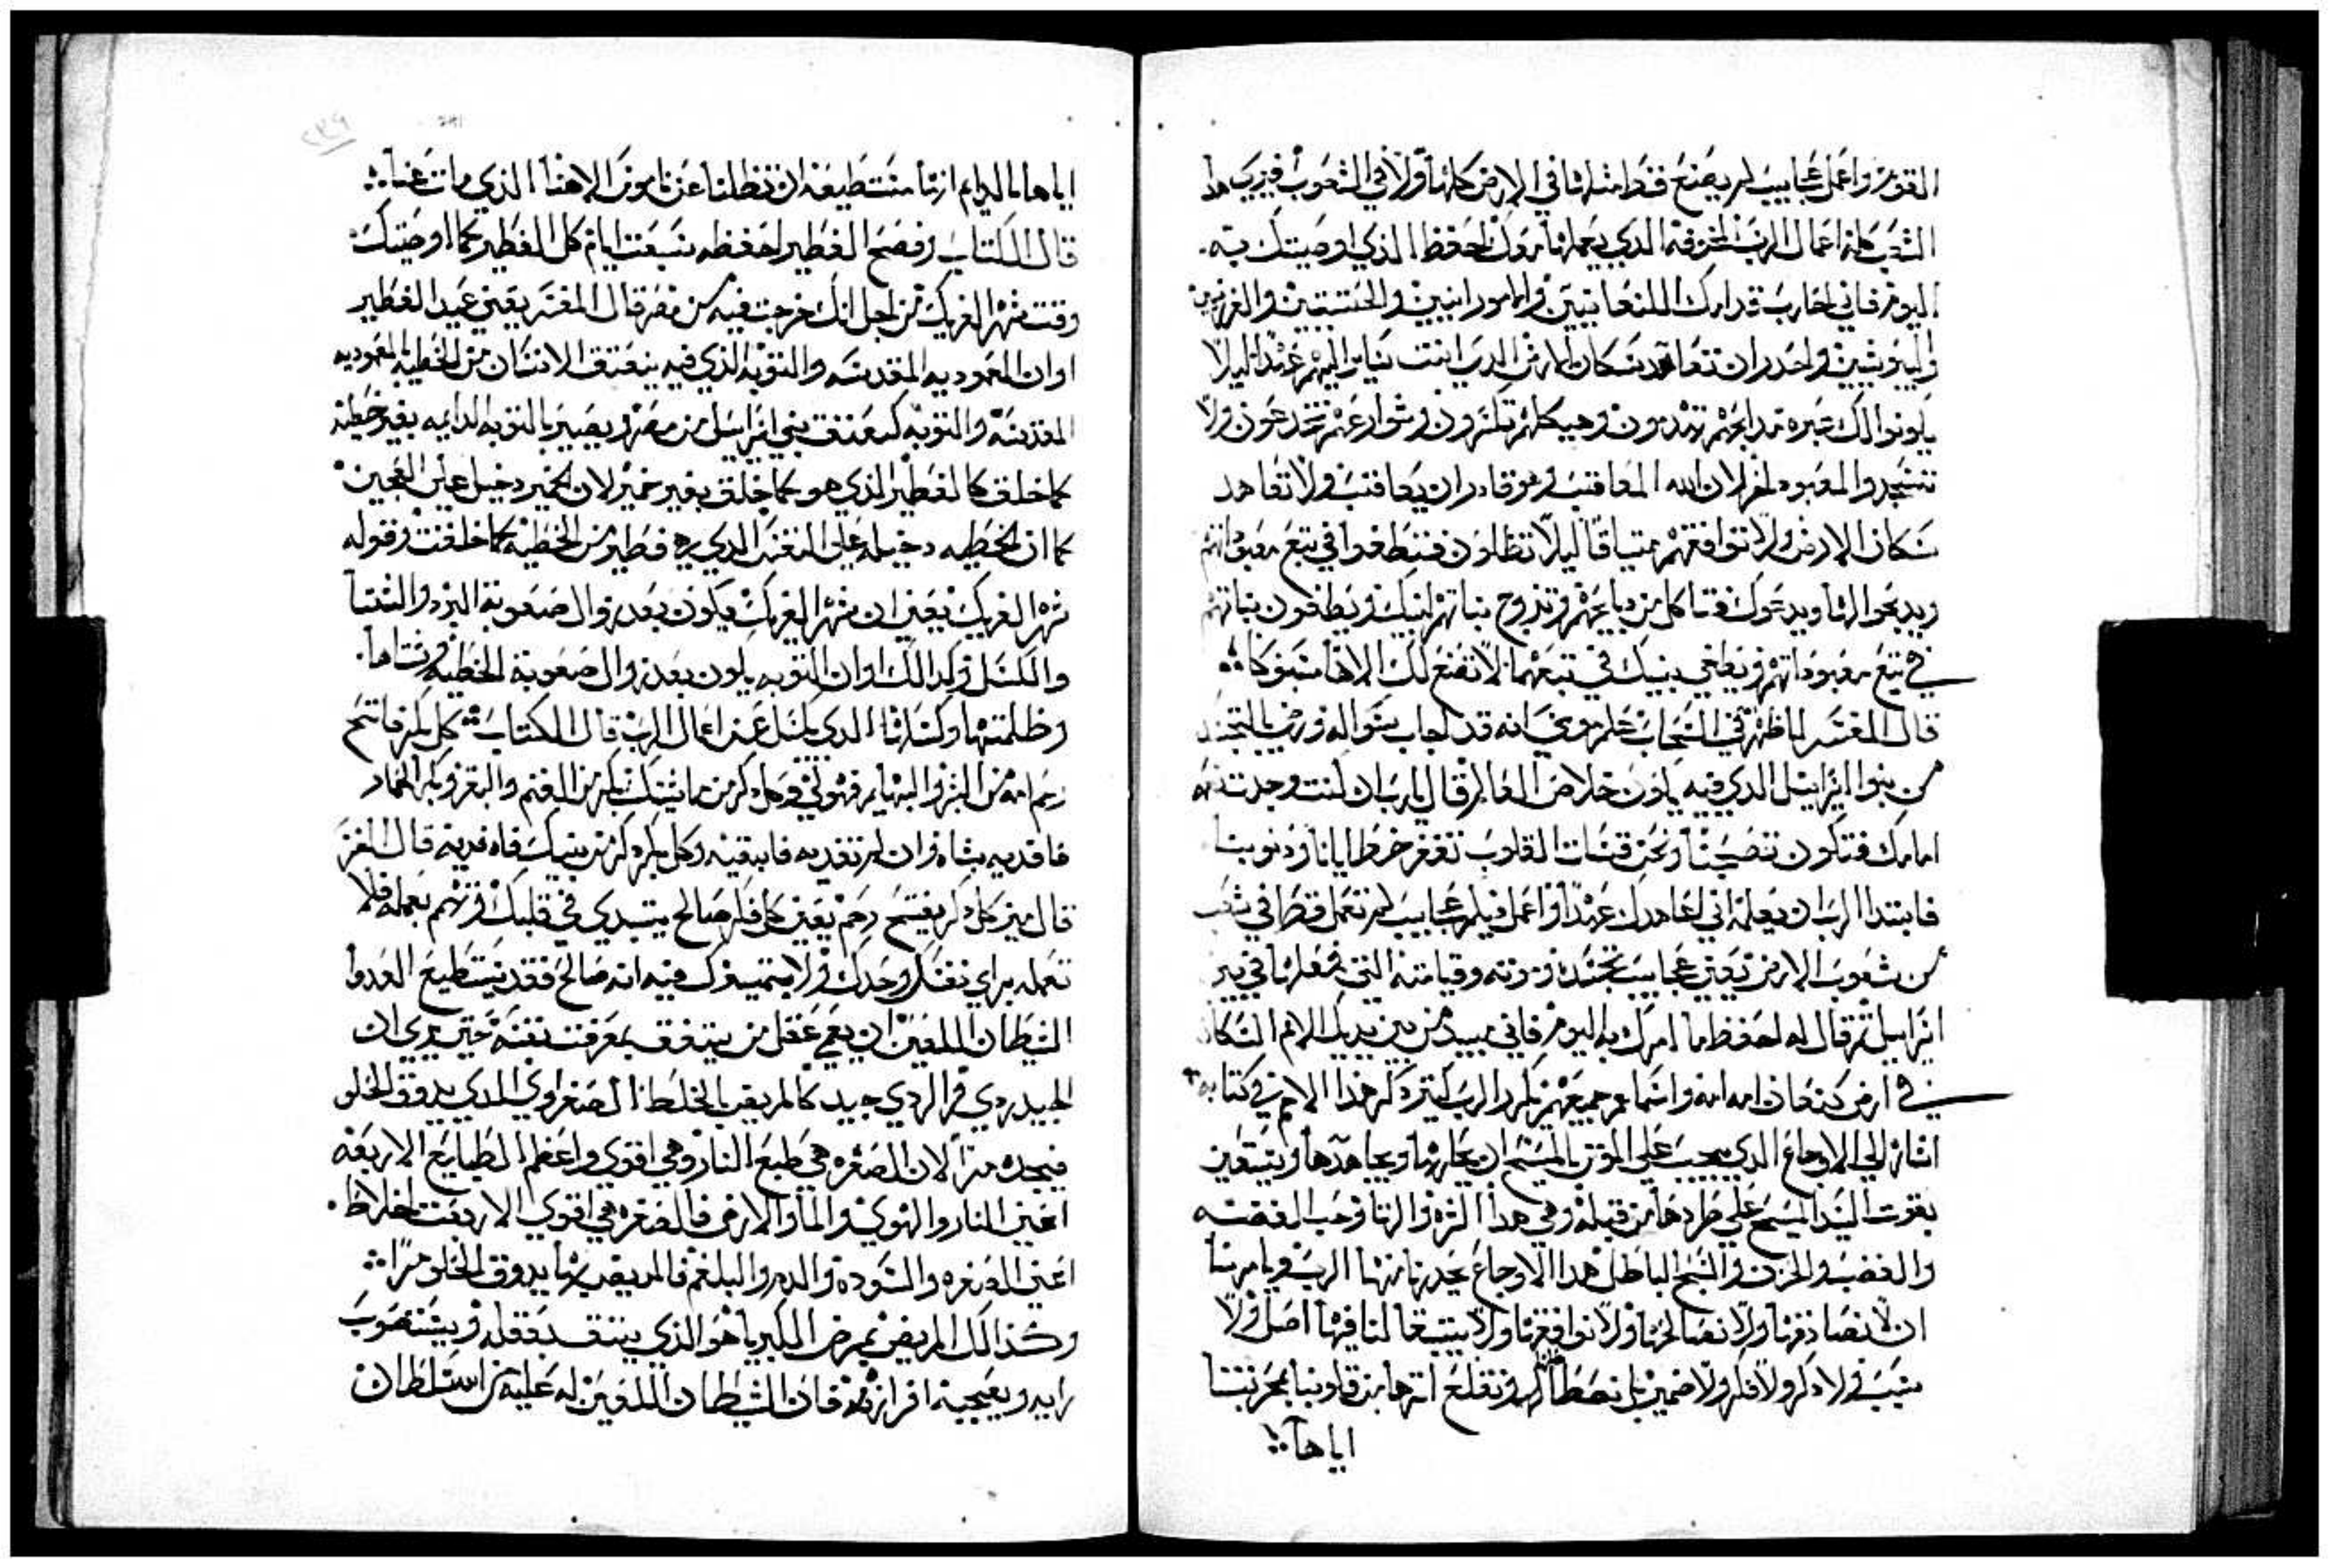 القوم واعمل عجايب لم يصنع قط مثلها في الارض كلها ولا في الشعوب فيري هدا
الشعب كله اعمال الرب المخوفه الدي يعملها معك احفظ الذي اوصيتك به
اليوم فاني اخارب قدامك الكنعانيين والامورانيين والحتتيين والفرزيين
واليبوسيين واحدر ان تعاهد سكان الارض الدي انت تاتي اليهم عهدا ليلا
يكونوا لك عتره مدابحهم تهدمون وهياكلهم تكسرون وسواريهم تجدعون ولا
تسجدوا لمعبود اخر لان الله المعاقب هو قادر ان يعاقب ولا تعاهد
سكان الارض ولا توافقهم ميتاقا ليلا تظلون فتطغوا في تبع معبوداتهم
ويدبحوا لها ويدعوك فتاكل من دبايحهم وتزوج بناتهم لبنيك ويطغون بناتهم
في تبع معبوداتهم ويطغي بنيك في تبعهما لا تصنع لك الاها مسبوكا
قال المفسر لما ظهر في السحاب علم موسي انه قد اجاب سواله ورضي بالتجسد
من بنوا اسراييل الدي فيه يكون خلاص العالم قال يارب ان كنت وجدت نعمه
امامك فتكون تصحبنا ونحن قسات القلوب تغفر خطايانا ودنوبنا
فابتدا الرب ان يعلمه اني اعاهدك عهدا واعمل فيكم عجايب لم تعمل قط في شعب
من شعوب الارض يعني عجايب تجسده وموته وقيامته التي فعلها في بني
اسراييل تم قال له احفظ ما امرك به اليوم فاني مبيد من بين يديك الامم السكان
في ارض كنعان امه امه واسماهم جميعهم يكرر الرب كتير دكر هذا الامم في كتابه
اشاره الي الاوجاع الدي يجب علي المومن بالمسيح ان يحاربها ويجاهدها ويستعين
بقوت السيد المسيح علي طردها من قبله وهي هدا الشره والزنا وحب الفضه
والغضب والحزن والسبح الباطل هدا الاوجاع يحدرنا منها الرب ويامرنا
ان لا نصادفها ولا نصالحها ولا نوافقها ولا يبتغا لنا فيها اصل ولا
سبب ولا دكر ولا فكر ولا ضمير بل ونقلع اترها من قلوبنا بمحربتنا
اياها
اياها بالدايم ازنها منتطيعه ان تظلنا عن ناموس الاهنا الذي مات عنا
قال الكتاب وفصح الفطير احفظه سبعت ايام كل الفطير كما اوصيتك
وقت شهر الفريك من اجل انك خرجت فيه من مصر قال المفسر يعني عيد الفطير
اوان المعموديه المقدسه والتوبه الذي فيه ينعتق الانسان من الخطيه المعموديه
المقدسه والتوبه كمعتق بني اسراييل من مصر ويصير بالتوبه الدايمه بغير خطيه
كما خلق كالفطير الذي هو كما خلق بغير خمير لان الخمير دخيل علي العجين
كما ان الخطيه دخيله علي النفس الدي هي فطير من الخطيه كما خلقت وقوله
شهر الفريك يعني ان شهر الفريك يكون بعد زوال صعوبة البرد والشتا
والكسل وكدالك اوان التوبه يكون بعد زوال صعوبة الخطيه وشتاها
وظلمتها وكسلها الدي يكسل عن اعمال الرب قال الكتاب كل بكر فاتح
رحم امه من البشر والبهايم فهو لي وكل دكر من ماشيتك بكر من الغنم والبقر وبكر الحمار
فافديه بشاه وان لم تفديه فابقيه وكل بكر دكر من بنيك فاه فديه قال المفسر
قال مين كل دكر يفتح رحم يعني كل فكر صالح يبتدي في قلبك وتهم بعمله فلا
تعمله براي نفسك وحدك ولا يتميزك فيه انه صالح فقد يستطيع العدوا
الشيطان اللعين ان يعمي عقل من يتفق بمعرفت نفسه حتي يري ان
الجيد ردي والردي جيد كالمريض بالخلط الصفراوي الدي يدوق الحلو
فيجده مرا لان الصفره هي طبع النار وهي اقوي واعظم الطبايع الاربعه
اعني النار والهوي والما والارض فالصفره هي اقوي الاربعت اخلاط
اعني الصفره والسوده والدم والبلغم فالمريض بها يدوق الحلو مرا
وكذالك المريض بمرض الكبريا هو الذي يتق بعقله ويستصوب
رايه ويعجبه افرازه فان الشيطان اللعين له عليه سلطان